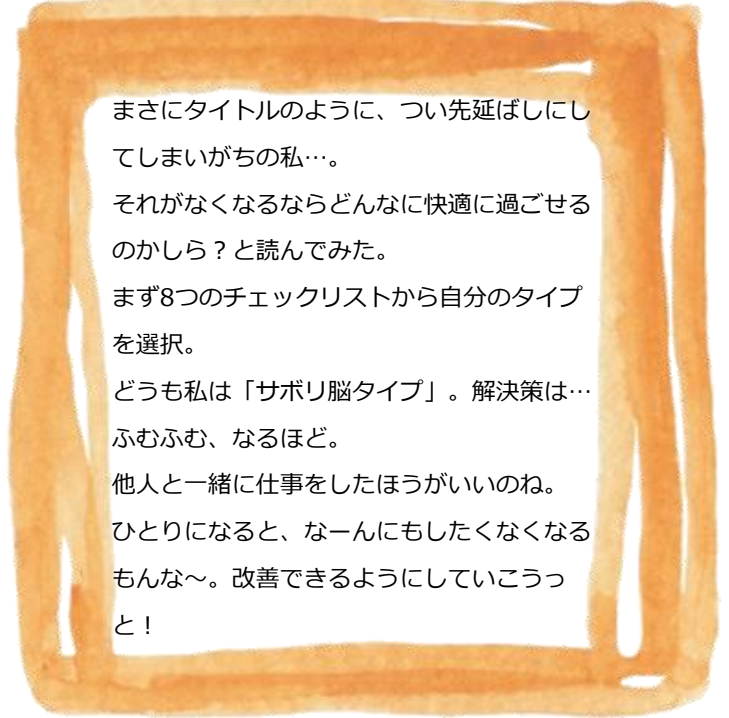 まさにタイトルのように、つい先延ばしにし
てしまいがちの私…。
それがなくなるならどんなに快適に過ごせる
のかしら？と読んでみた。
まず8つのチェックリストから自分のタイプ
を選択。
どうも私は「サボリ脳タイプ」。解決策は…
ふむふむ、なるほど。
他人と一緒に仕事をしたほうがいいのね。
ひとりになると、なーんにもしたくなくなる
もんな～。改善できるようにしていこうっ
と！